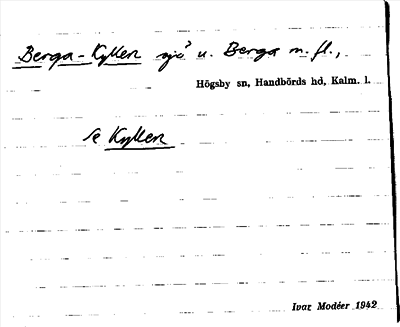 Berga-Kyllen sjö u. Berga m. fl.,
Högsby sn, Handbörds hd, Kalm. l.
se Kyllen
Ivar Modéer 1942